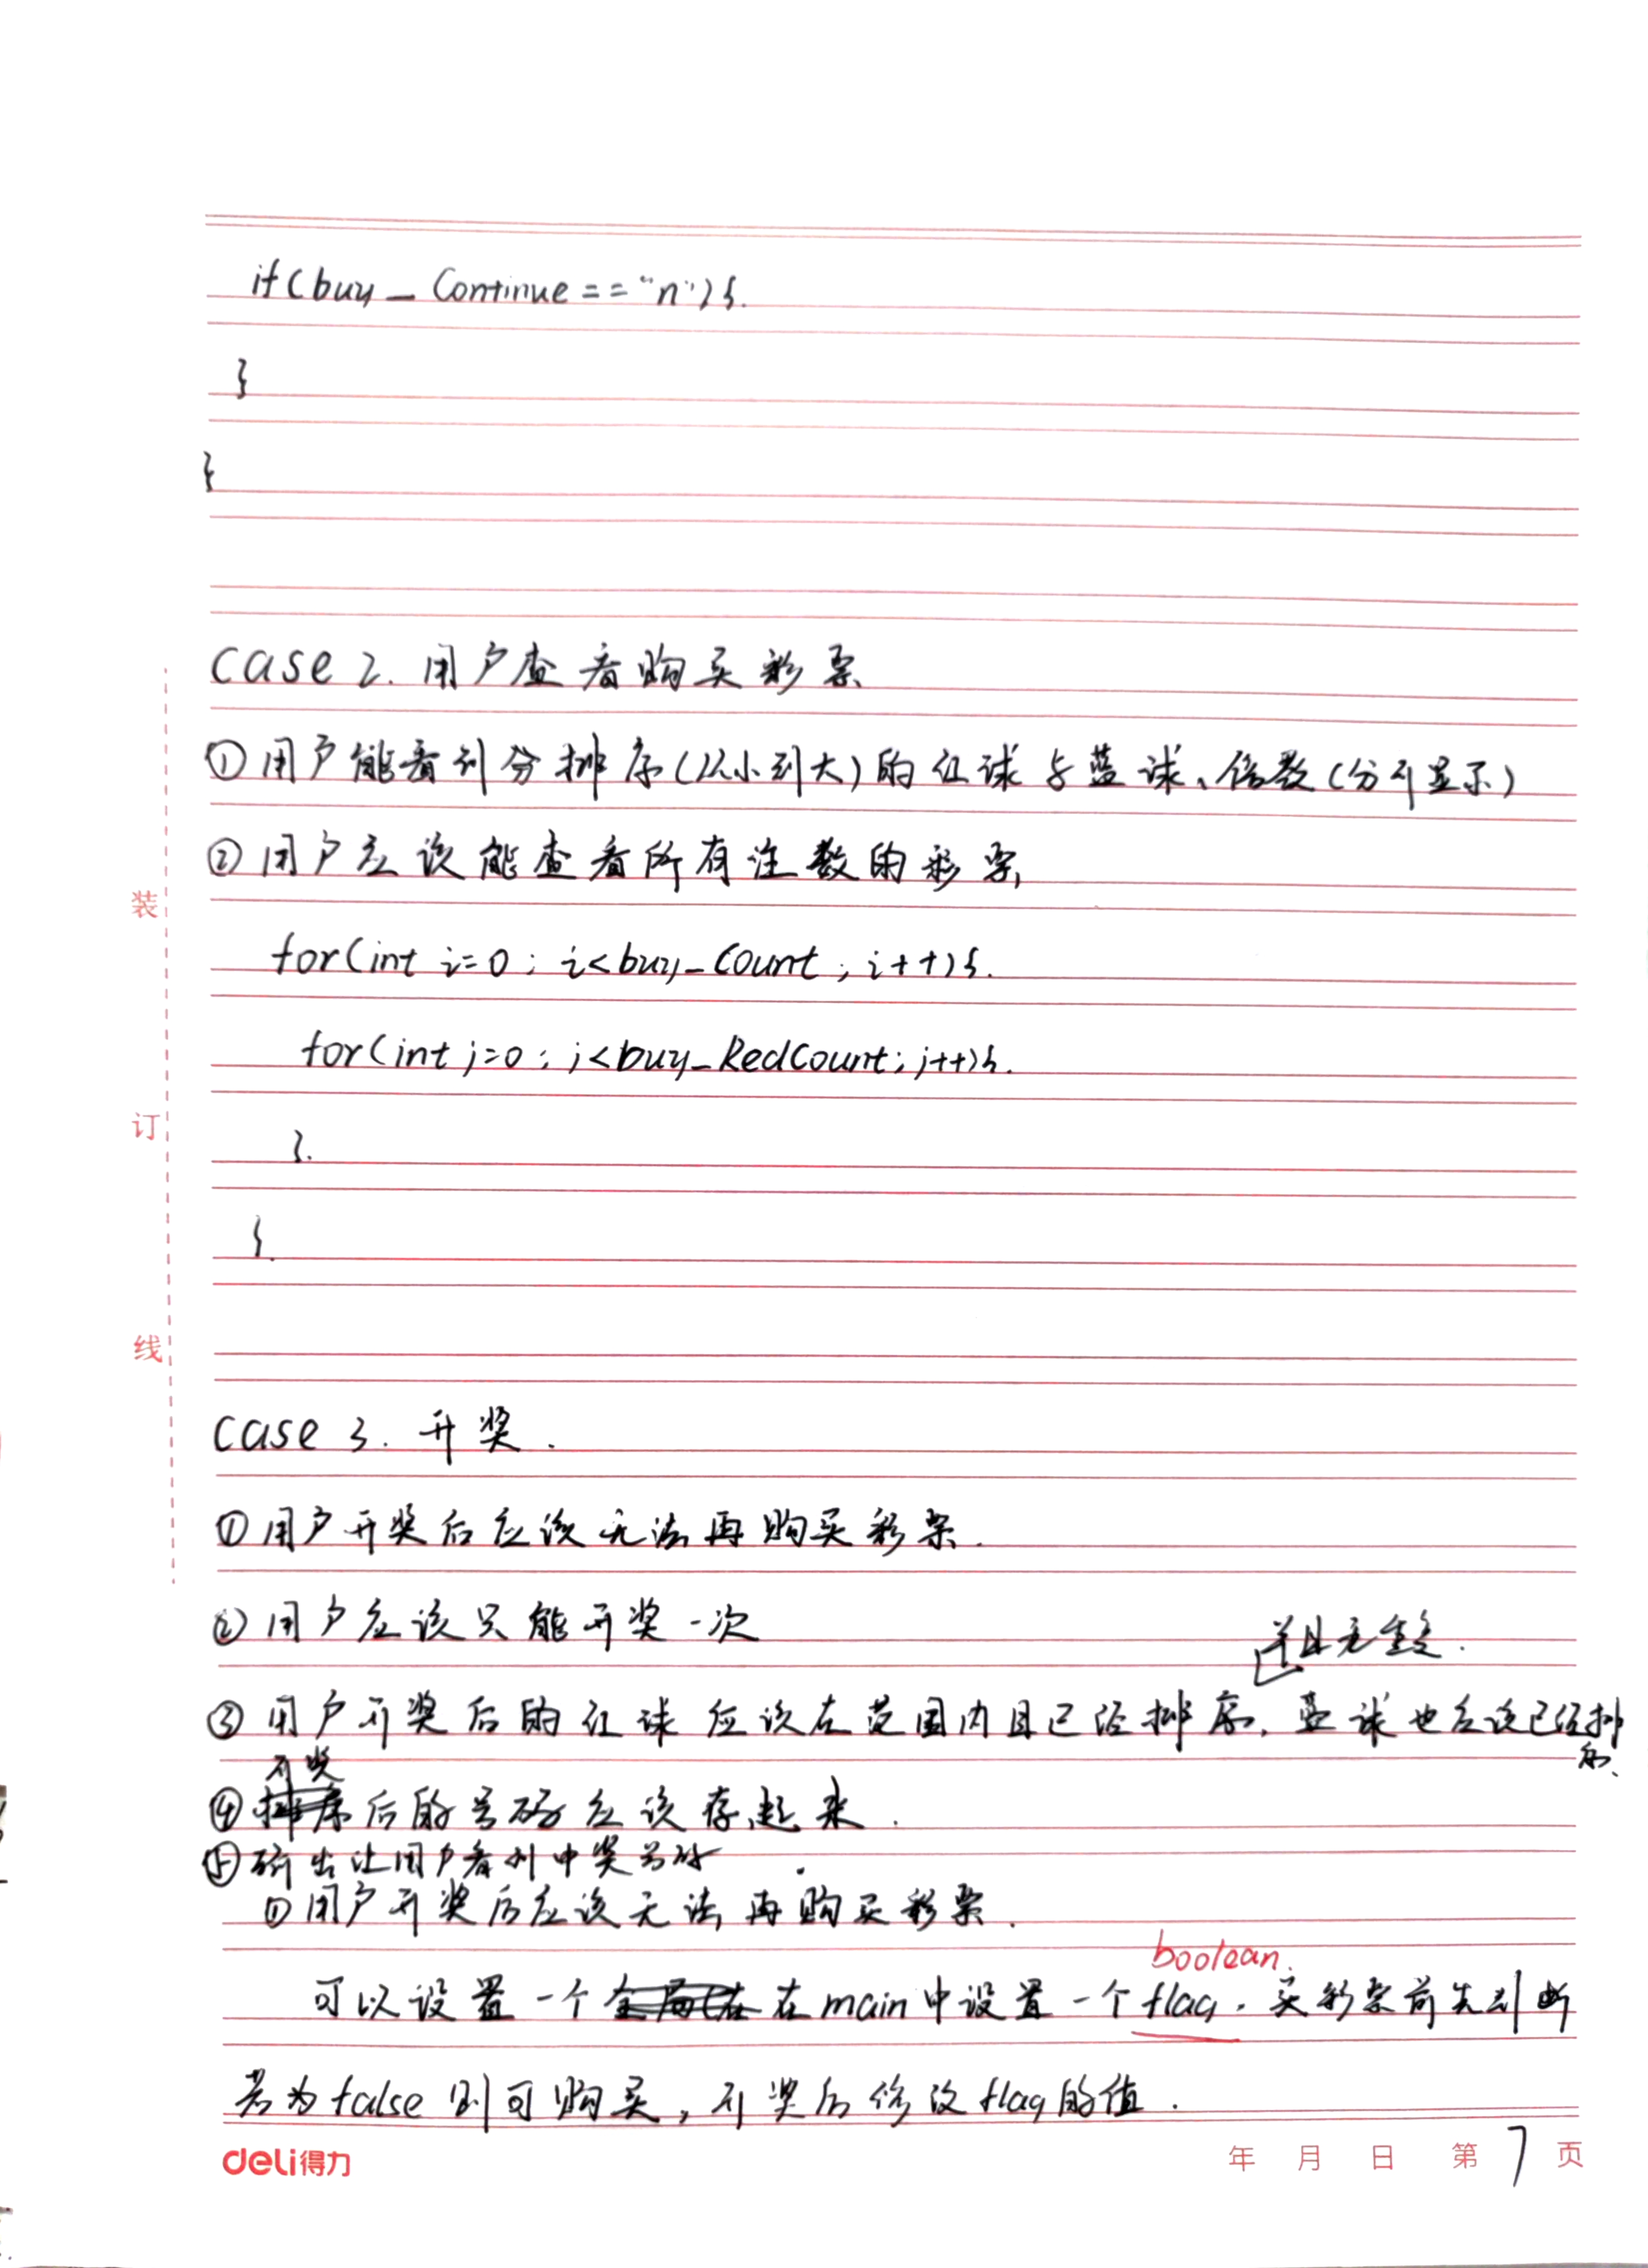 if(buy_Continue=="n"){.
}
}
case 2. 用户查看购买彩票
①用户能看到分排序(从小到大)的红球与蓝球、倍数(分开显示)
②用户应该能查看所有注数的彩票,
for(int i=0; i<buy_Count; i++){.
for(int j=0; j<buy_RedCount; j++){.
}.
}.
装
订
线
case 3. 开奖.
①用户开奖后应该无法再购买彩票.
②用户应该只能开奖一次
并且无重复.
③用户开奖后的红球应该在范围内且已经排序,蓝球也应该已经排
序.
开奖
④后的号码应该存起来.
⑤输出让用户看到中奖号码
①用户开奖后应该无法再购买彩票.
boolean.
可以设置一个在main中设置一个flag,买彩票前先判断
若为false则可购买,开奖后修改flag的值.
deli得力
年 月 日 第 7 页